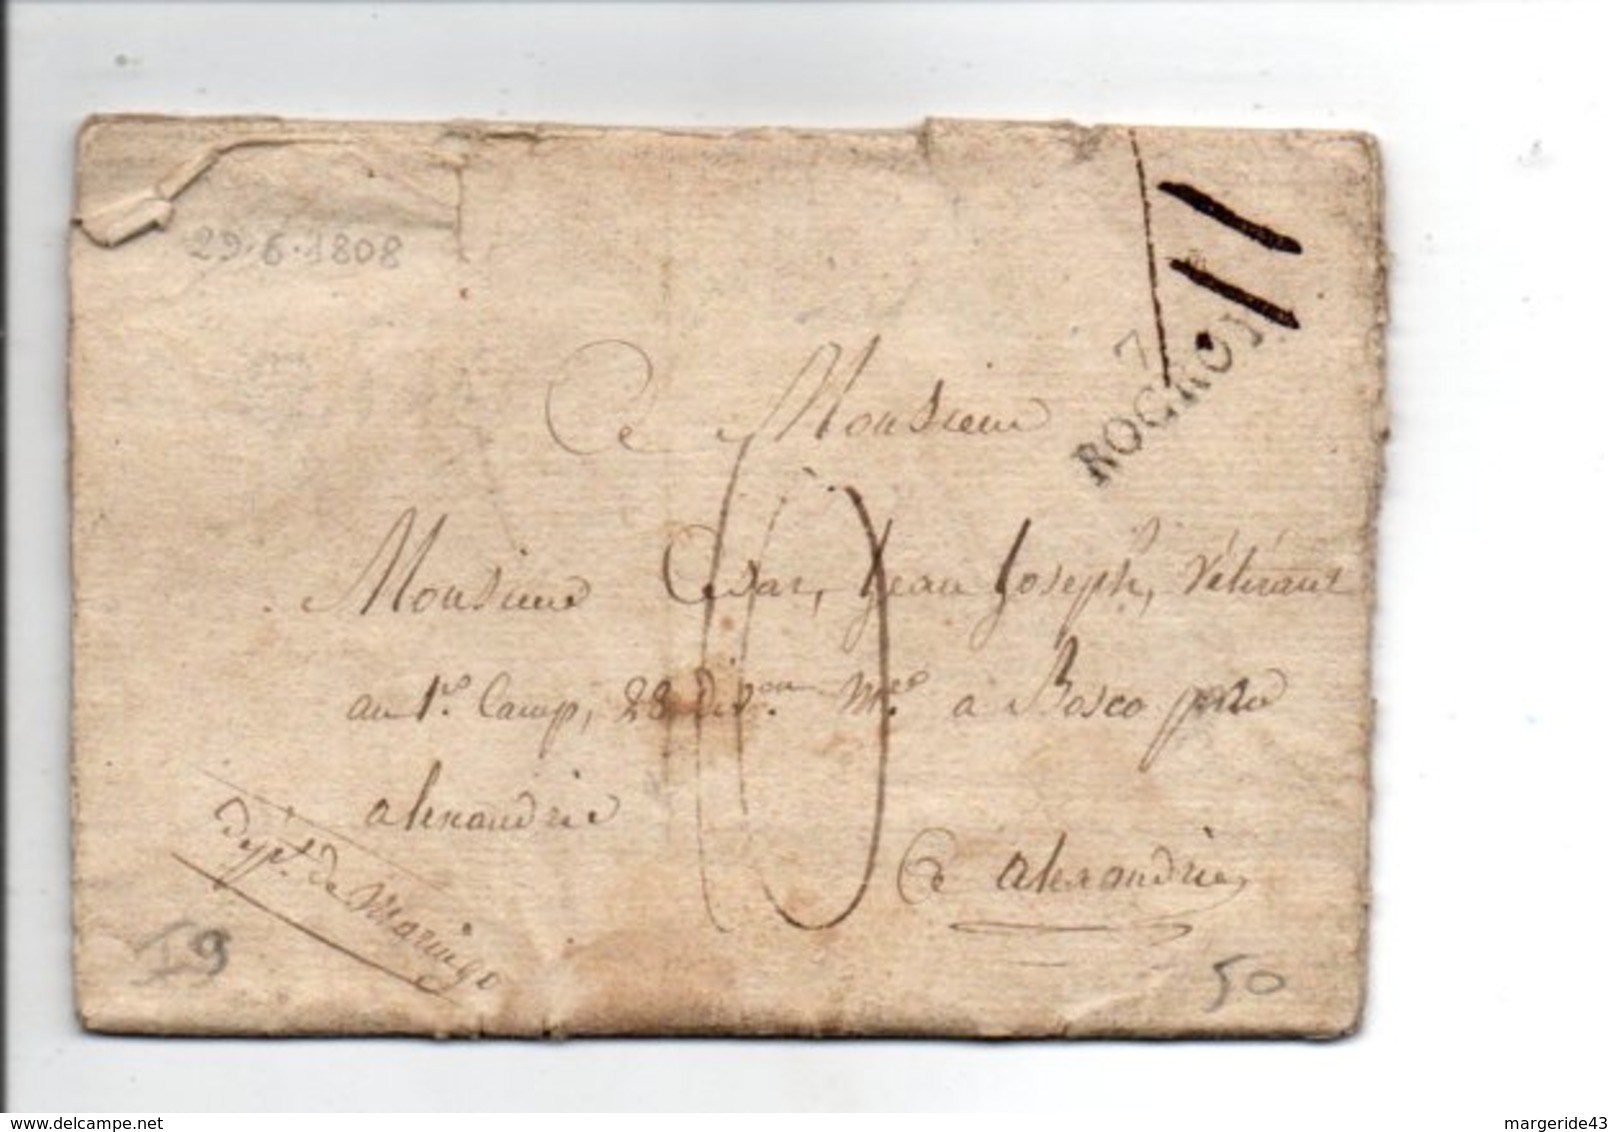 29.6.1808
7
ROCROY
A Monsieur
Monsieur Cesar, Jean Joseph, Vétérant
au 1er. Camp, 28 divon. Mre. à Bosco près
alexandrie
A alexandrie
dépt. de Maringo
19
50
www.delcampe.net
margeride43